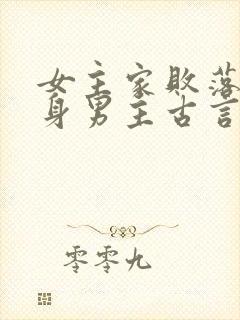 女主家败落
身男主古言
零零九